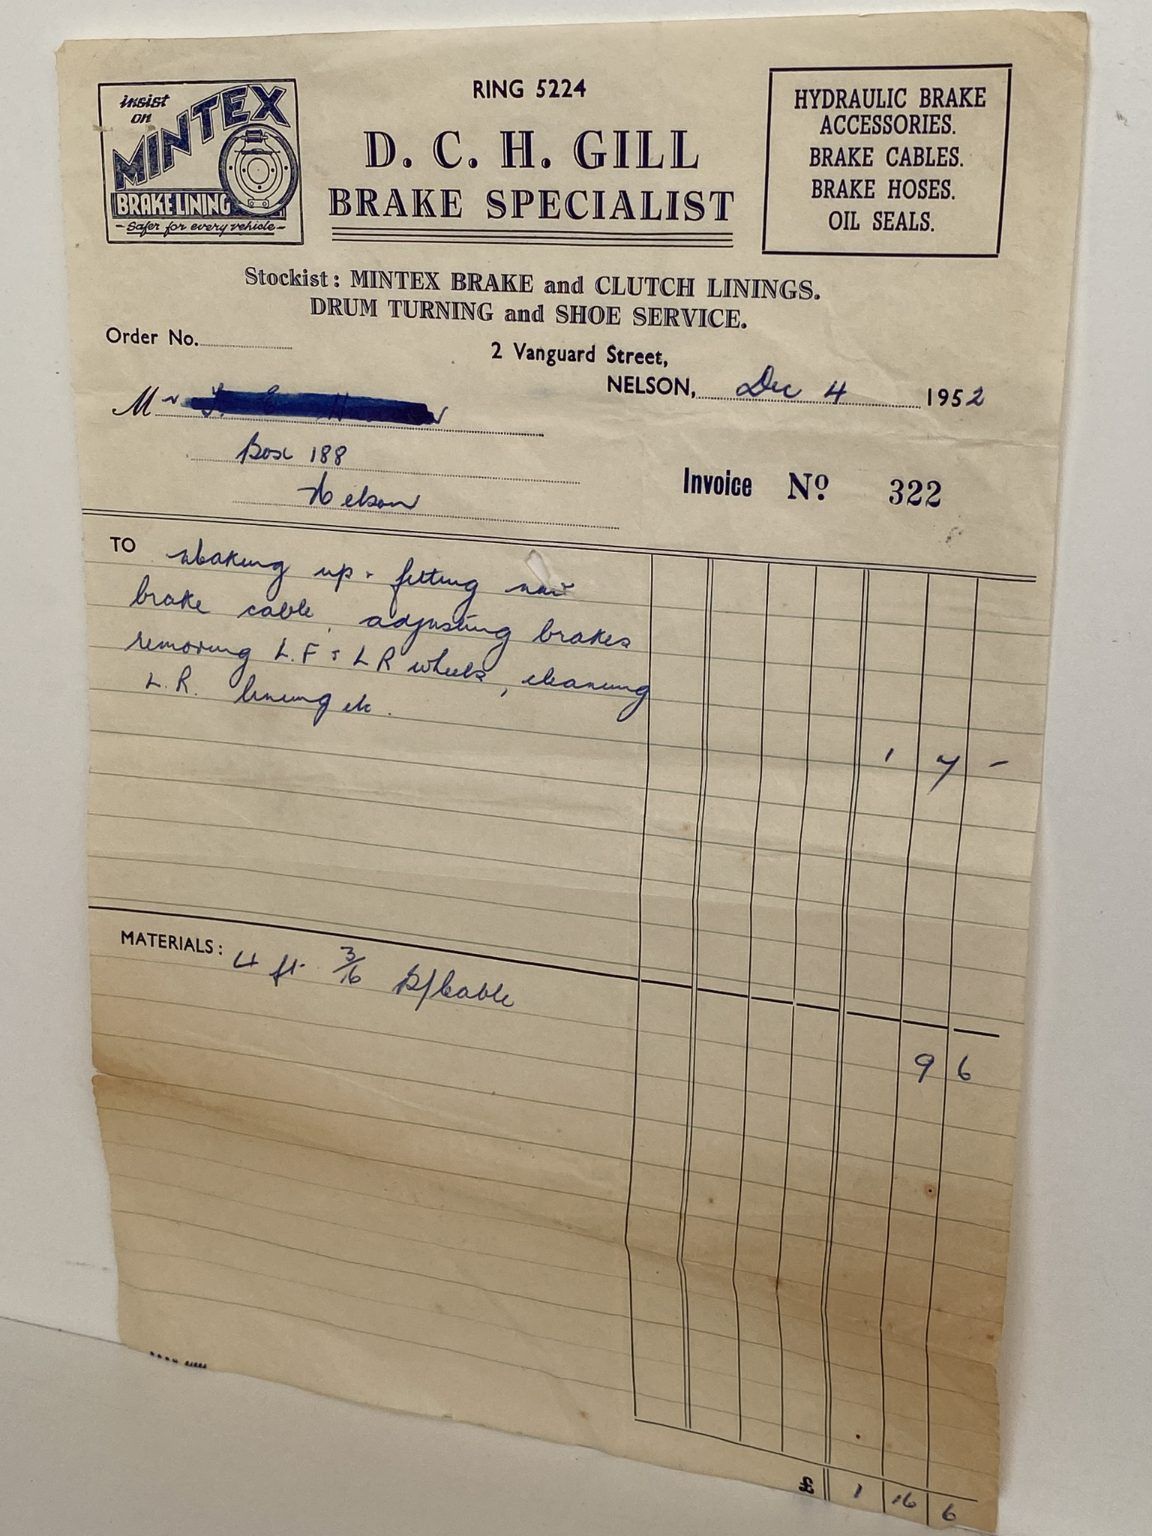 insist
on
MINTEX
BRAKE LINING
- Safer for every vehicle -
RING 5224
D. C. H. GILL
BRAKE SPECIALIST
HYDRAULIC BRAKE
ACCESSORIES.
BRAKE CABLES.
BRAKE HOSES.
OIL SEALS.
Stockist: MINTEX BRAKE and CLUTCH LININGS.
DRUM TURNING and SHOE SERVICE.
Order No.
2 Vanguard Street,
NELSON, Dec 4 1952
Mr
Box 188
Nelson
Invoice No 322
TO Making up & fitting new
brake cable, adjusting brakes
removing L.F & LR wheels, cleaning
L.R. lining etc.
1 7 -
MATERIALS: 4 ft 3/16 B/Cable
9 6
£ 1 16 6